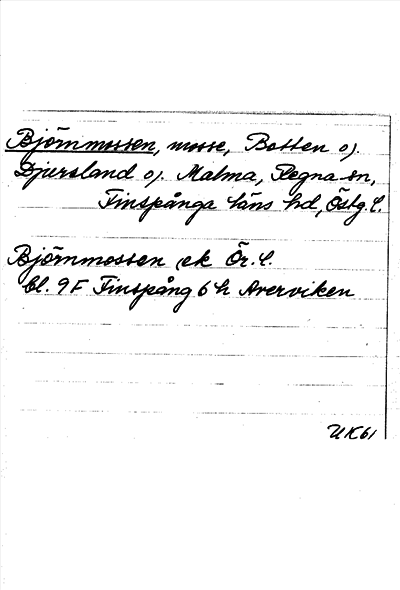 Björnmossen, mosse, Botten o).
Djursland o). Malma, Regna sn,
Finspånga läns hd, Östg. l.
Björnmossen ek Ör. l.
bl. 9F Finspång 6 h Averviken
UK61